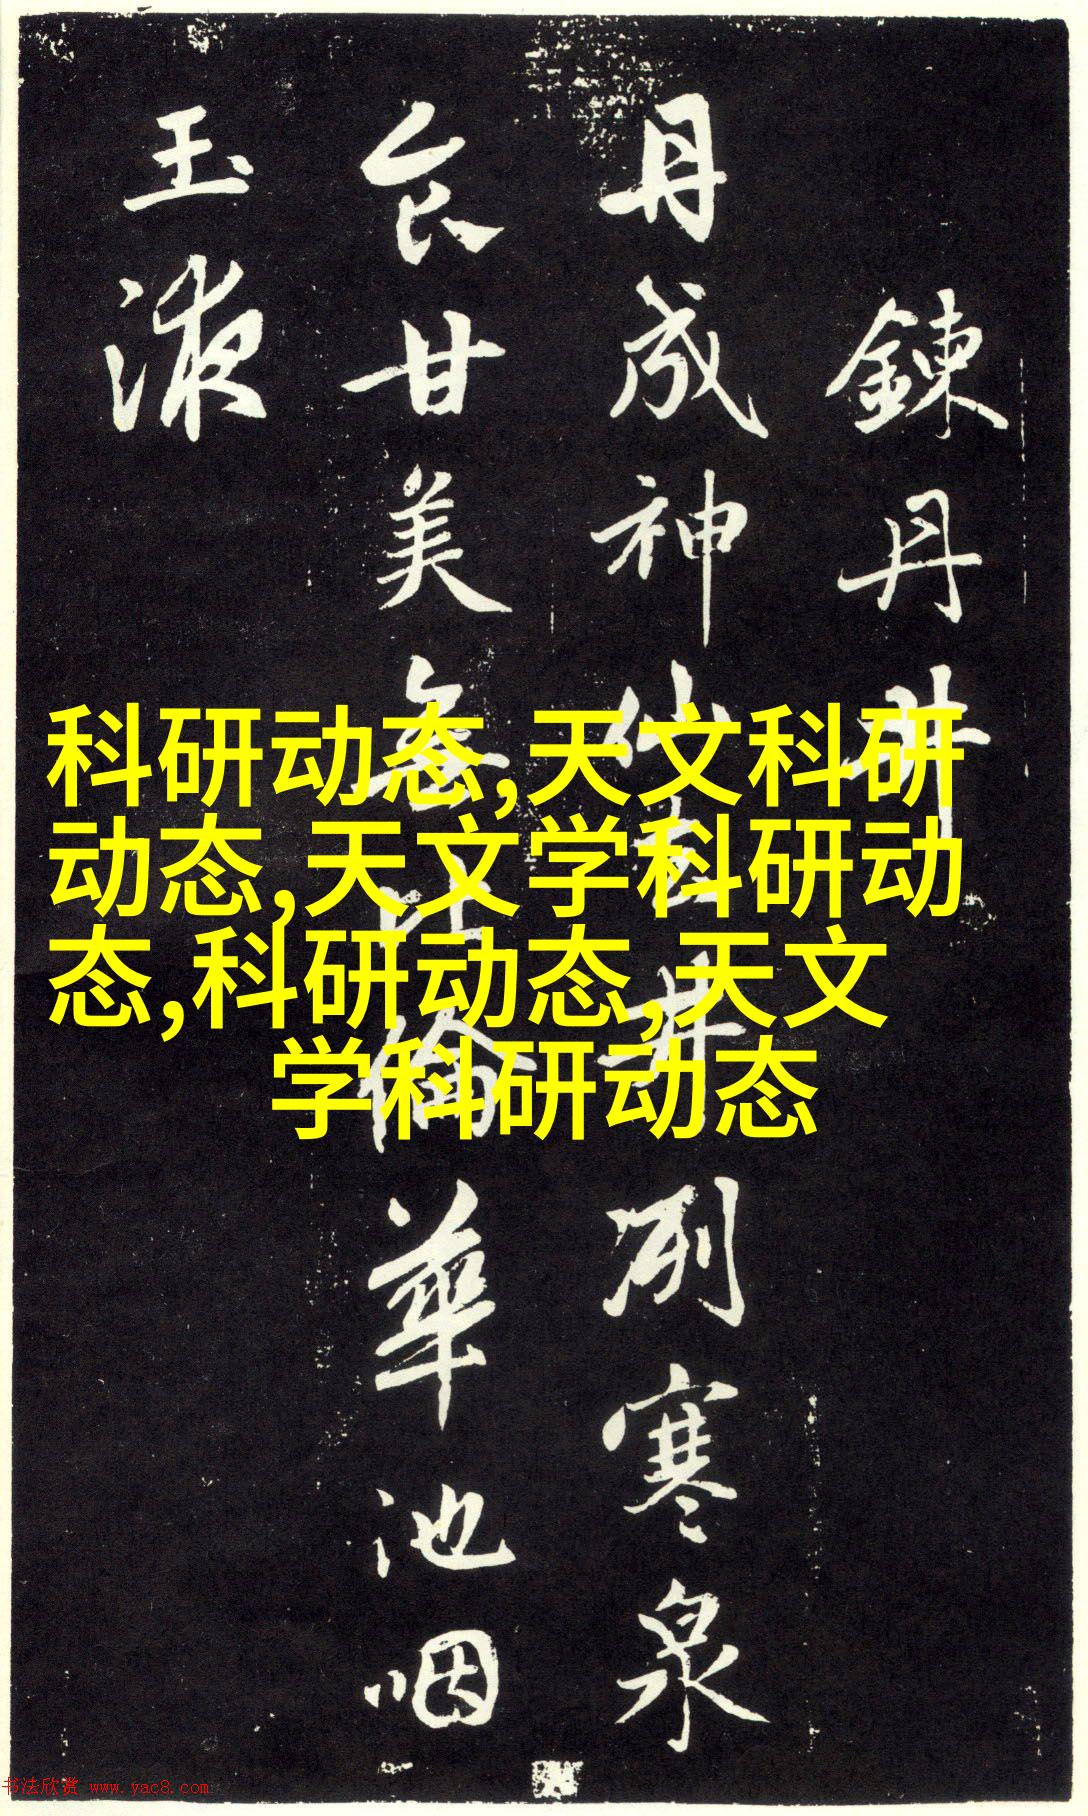 鍊丹井
丹成神仙去井冽寒泉
食甘美無比倫華池咽
玉液
科研动态,天文科研
动态,天文学科研动
态,科研动态,天文
学科研动态
书法欣赏 www.yac8.com